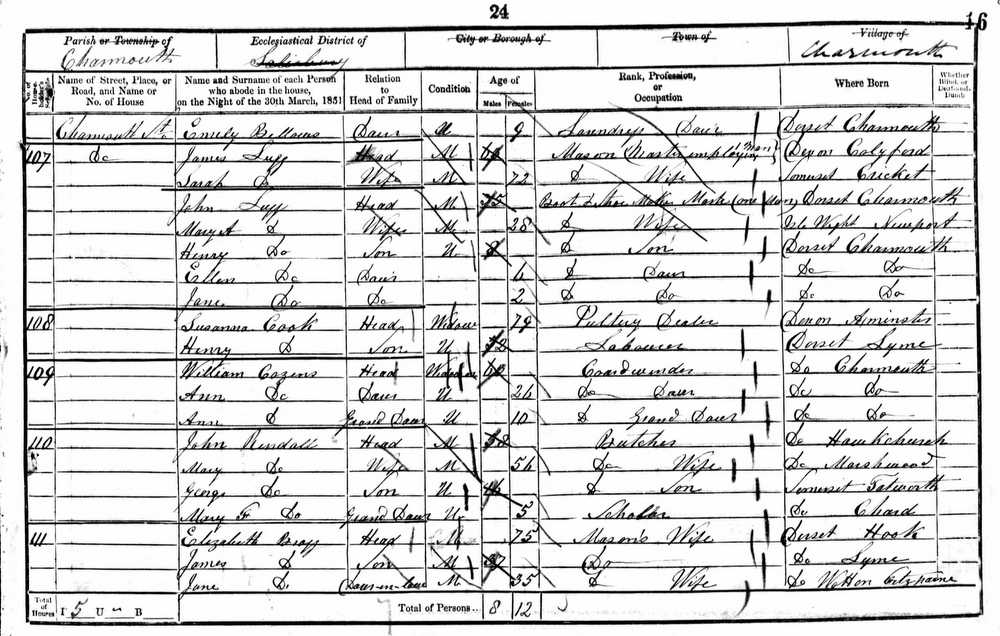 24
16
Parish or Township of
Charmouth
Ecclesiastical District of
Salisbury
City or Borough of
Town of
Village of
Charmouth
No. of Name of Street, Place, or Road, and Name or No. of House
Name and Surname of each Person who abode in the house, on the Night of the 30th March, 1851
Relation to Head of Family
Condition
Age of
Males Females
Rank, Profession, or Occupation
Where Born
Whether Blind, or Deaf-and-Dumb
Charmouth St. Emily Bellows Daur U 9 Laundress Daur Dorset Charmouth
107 Do James Lugg Head M Mason Master employing Man Devon Colyford
Sarah D Wife M 72 D Wife Somerset Cricket
John Lugg Head M 35 Boot & Shoe Maker Master (one Man) Dorset Charmouth
Mary A D Wife M 28 D Wife Isle Wight Newport
Henry Do Son U 8 D Son Dorset Charmouth
Ellen Do Daur 6 D Daur Do Do
Jane Do Do 2 D Do Do Do
108 Susanna Cook Head Widow 79 Pultury Dealer Devon Axminster
Henry D Son U Labourer Dorset Lyme
109 William Cozens Head 60 Coardwinder Do Charmouth
Ann Do Daur U 26 Do Daur Do Do
Ann D Grand Daur U 10 D Grand Daur Do Do
110 John Rendall Head M 58 Butcher Do Hawkchurch
Mary Do Wife M 56 Do Wife Do Marshwood
George Do Son U 16 D Son Somerset Tatworth
Mary F Do Grand Daur U 5 Scholar Do Chard
111 Elizabeth Bragg Head M 75 Mason's Wife Dorset Hook
James D Son M 37 Do Do Lyme
Jane D Daur-in-law M 35 D Wife Do Wotton Fitzpaine
Total of Houses I 5 U B
Total of Persons.. 8 12